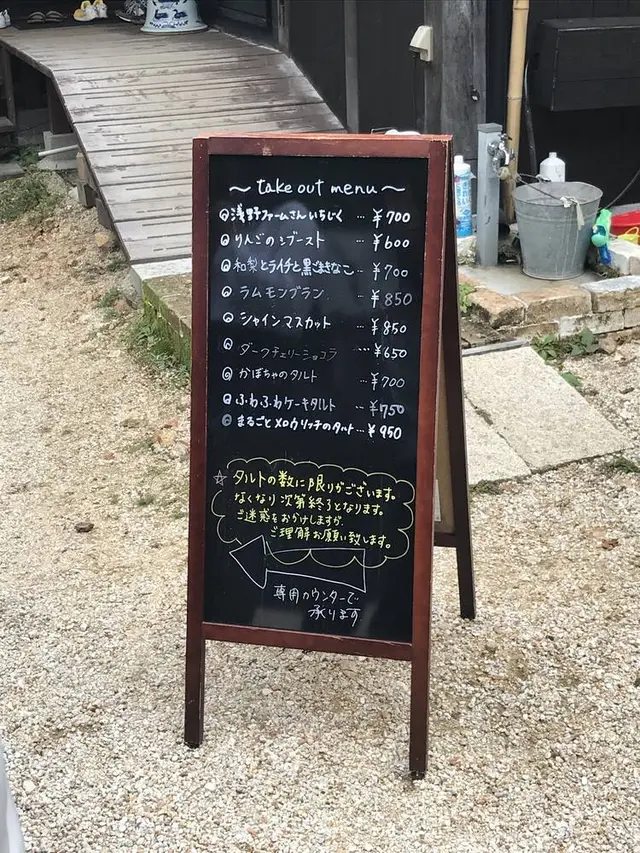 〜 take out menu 〜
浅野ファームさんいちじく … ¥700
りんごのシブースト … ¥600
和梨とライチと黒ごまきなこ … ¥700
ラムモンブラン … ¥850
シャインマスカット … ¥850
ダークチェリーショコラ … ¥650
かぼちゃのタルト … ¥700
ふわふわケーキタルト … ¥750
まるごとメロウリッチのタルト … ¥950
☆ タルトの数に限りがございます。
なくなり次第終了となります。
ご迷惑をおかけしますが、
ご理解お願い致します。
専用カウンターで
承ります